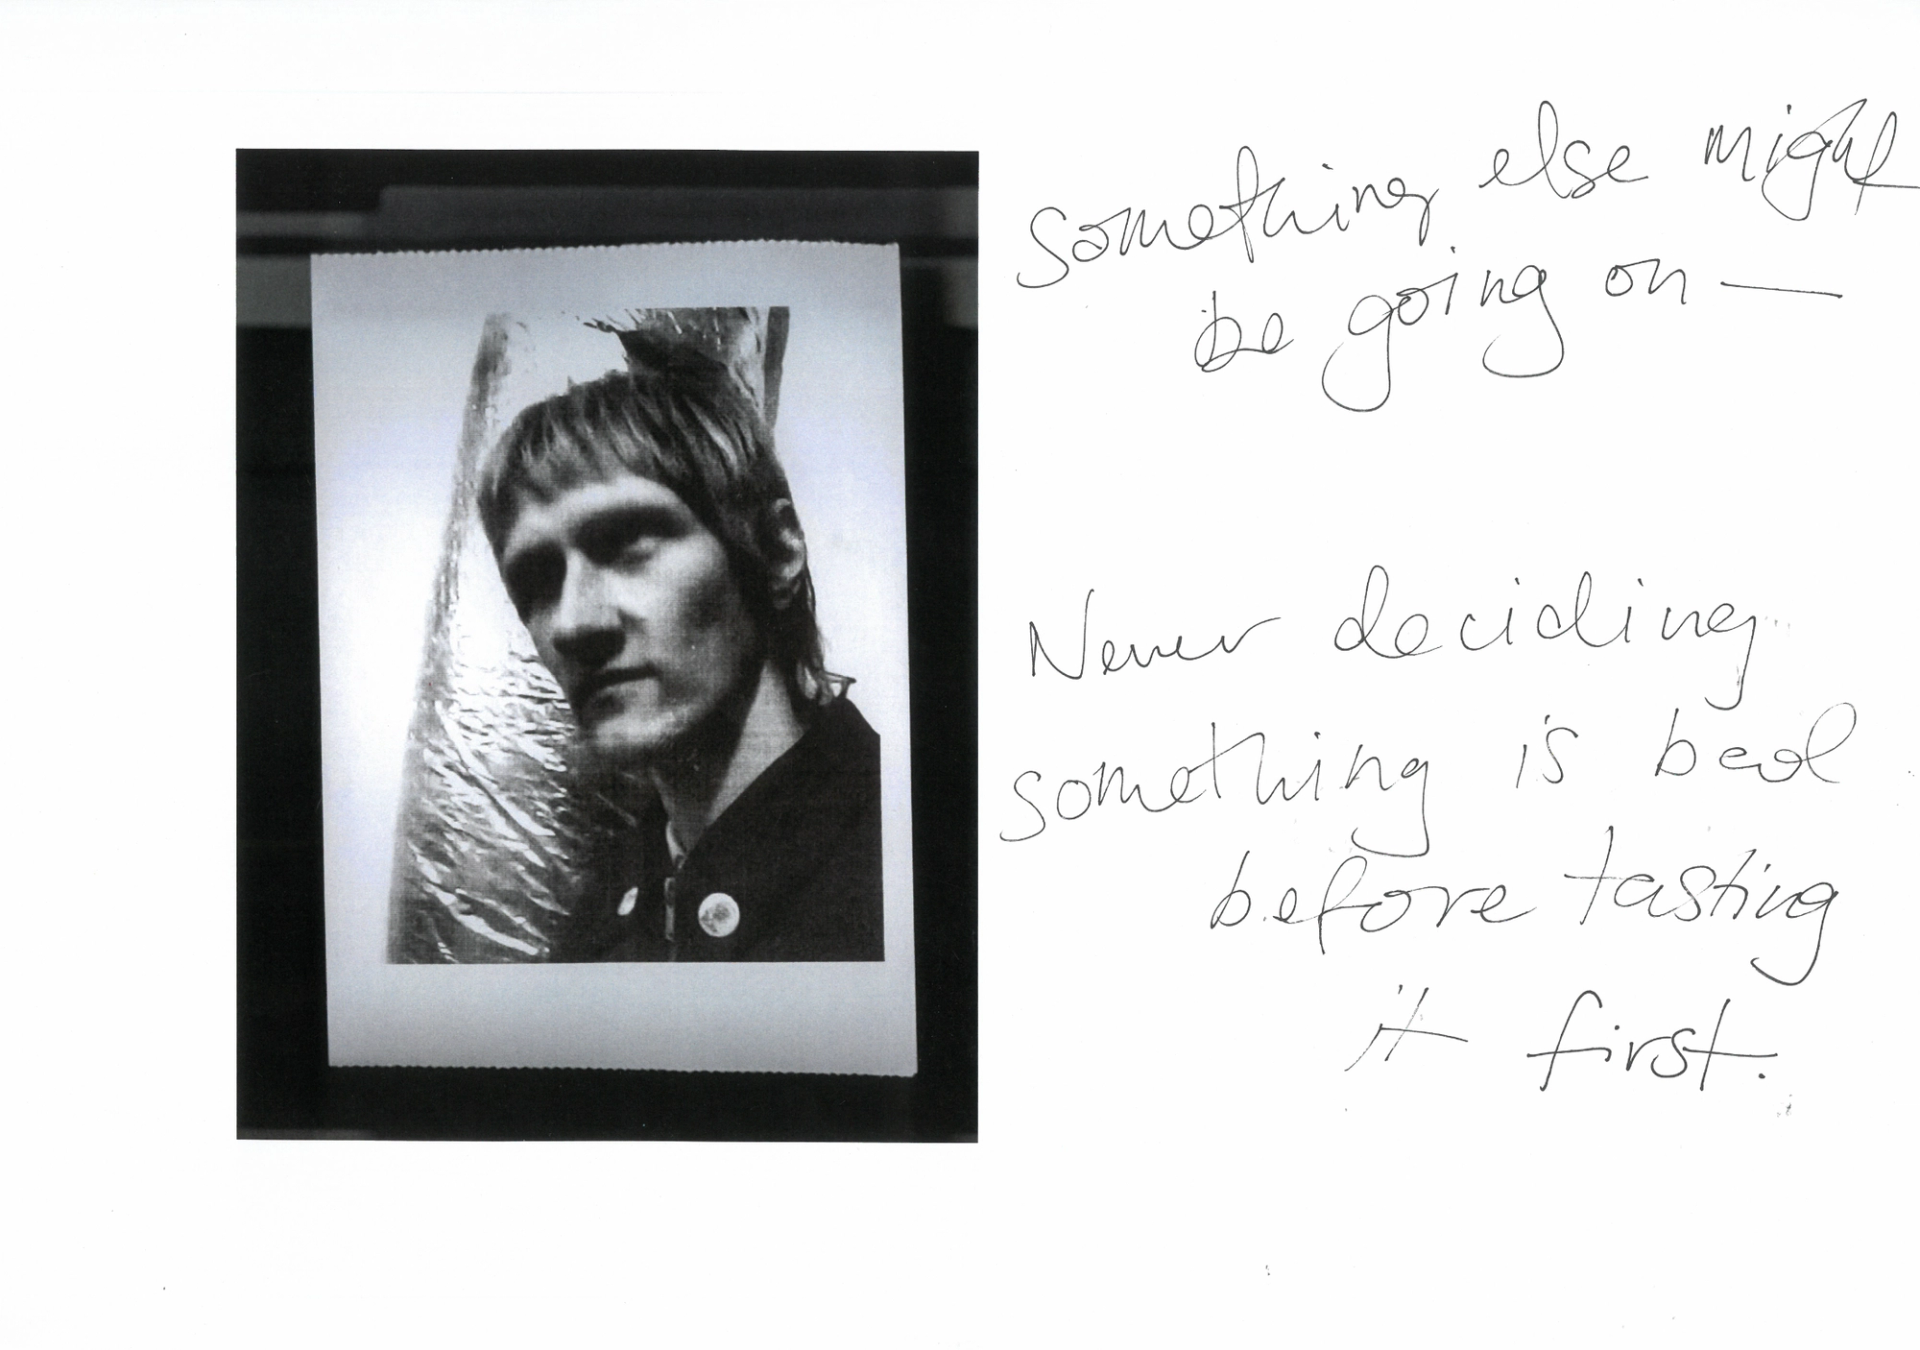 something else might
be going on —
Never deciding
something is bad
before tasting
it first.